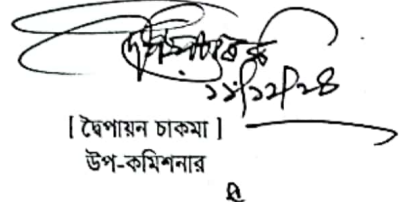 ১১/১২/২৪
[ দ্বৈপায়ন চাকমা ]
উপ-কমিশনার